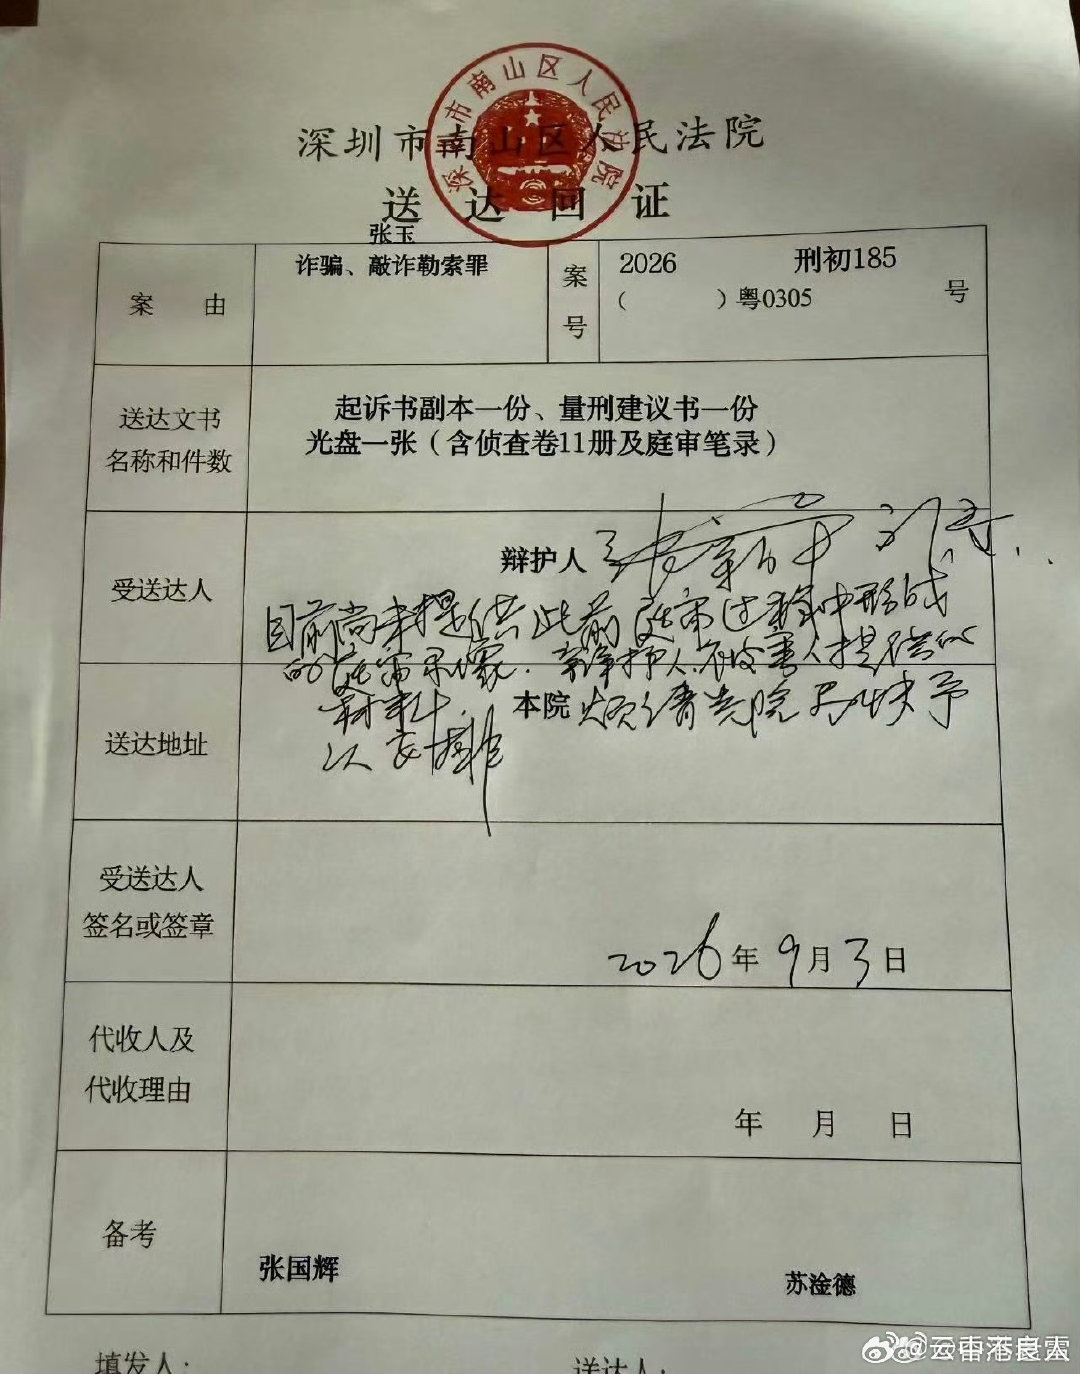 深圳市南山区人民法院
深圳市南山区人民法院
送达回证
案由
张玉
诈骗、敲诈勒索罪
案号
2026 刑初185
（ ）粤0305 号
送达文书
名称和件数
起诉书副本一份、量刑建议书一份
光盘一张（含侦查卷11册及庭审笔录）
受送达人
辩护人
目前尚未提供此前庭审过程中形成
的庭审录像、辩护人、被害人提供的
材料. 烦请贵院尽快予
以安排
送达地址
本院
受送达人
签名或签章
2026年9月3日
代收人及
代收理由
年 月 日
备考
张国辉
苏淦德
填发人：
送达人：